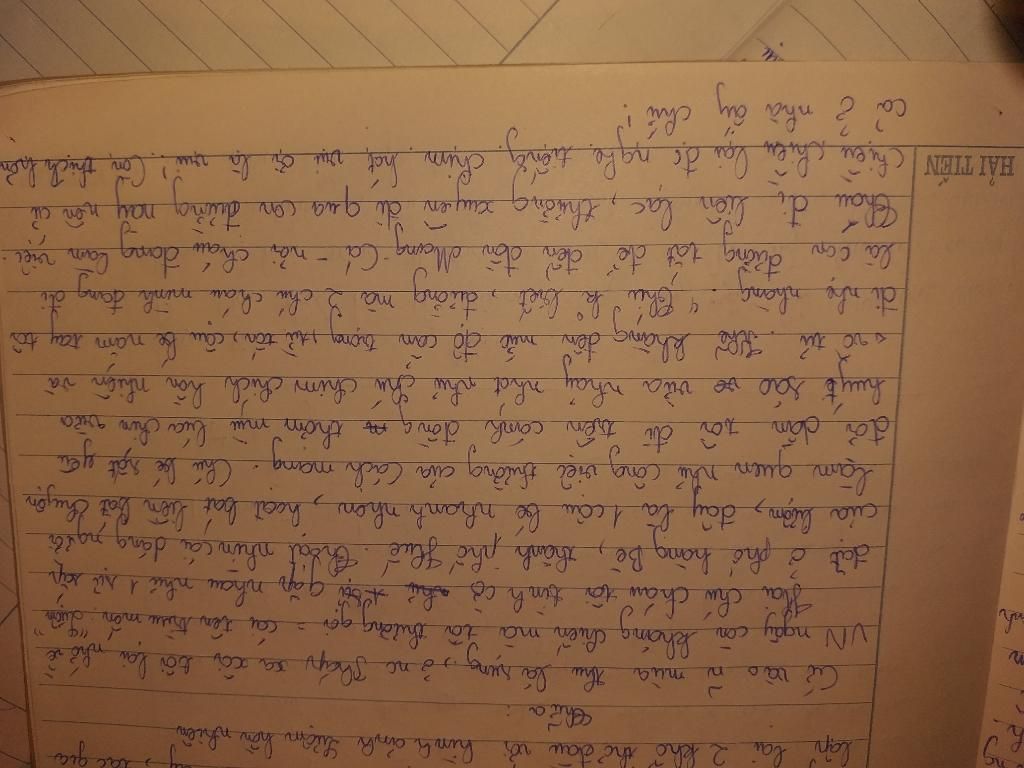 lập lại 2 khổ thơ đầu với hình ảnh Lượm hồn nhiên
Thừa:
Cứ vào n mùa thu lá rụng, ở nc Pháp xa xôi tôi lại nhớ về
VN ngày còn kháng chiến mà tôi thường gọi = cái tên trìu mến: "Lượm"
Hai chú cháu tôi tình cờ gặp nhau như 1 sự sắp
đặt ở phố hàng Bè, thành phố Huế. Thoạt nhìn cái dáng người
của Lượm, đây là 1 cậu bé nhanh nhẹn, hoạt bát liền bắt chuyện
làm quen như công việc thường của cách mạng. Chú bé rất yêu
đời dẫn tôi đi trên cánh đồng thơm mùi lúa chín vừa
huýt sáo vừa nhảy nhót như chú chim chích hồn nhiên và
vô tư. Khẽ khàng đến mức độ cẩn trọng, từ tốn, cậu bé nắm tay tôi
đi nhẹ nhàng. "Chú k biết, đường mà 2 chú cháu mình đang đi
là con đường tắt để đến đồn Mang Cá - nơi cháu đang làm việc.
Cháu đi liên lạc, thường xuyên đi qua con đường này nên cứ
chiều chiều lại đc nghe tiếng chim hót vui ơi là vui! Còn thích hơn
cả ở nhà ấy chú!
HẢI TIẾN